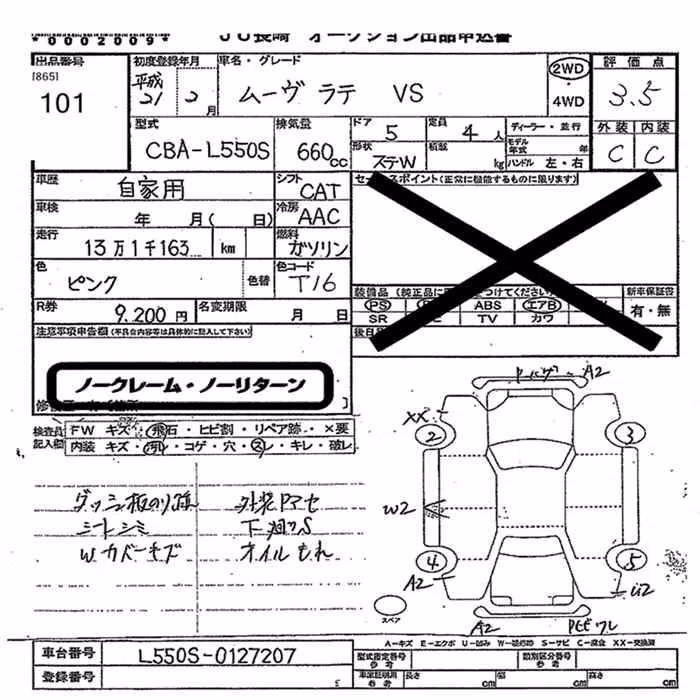 *0002009* JU長崎 オークション出品申込書
出品番号 初度登録年月 車名・グレード 評価点
[865] 101 平成 21 2月 ムーヴ ラテ VS 2WD ・ 4WD 3.5
型式 排気量 ドア 定員 ディーラー・並行 外装 内装
CBA-L550S 660cc 5 4人 モデル年式 年 C C
形状 積載 ステW kg ハンドル 左・右
車歴 自家用 シフト CAT セールスポイント(正常に機能するものに限ります)
車検 年 月( 日) 冷房 AAC
走行 13万1千163 km 燃料 ガソリン
色 ピンク 色替 色コード T16
装備品 新車保証書
PS ABS エアB 有・無
SR TV カワ
R券 9,200円 名変期限 月 日
注意事項申告欄(不具合内容等は具体的に記入して下さい)
ノークレーム・ノーリターン
検査員記入欄 FW キズ・飛石・ヒビ割・リペア跡・×要
内装 キズ・汚れ・コゲ・穴・スレ・キレ・破レ
シートシミ
Wカバーキズ
下廻りS
オイルもれ
A2
XX
2 3
W2
4 5
A2 U2
スペア
A2
A-キズ E-エクボ U-凹み W-補修跡 S-サビ C-腐食 XX-交換済
車台番号 L550S-0127207 型式指定番号 参考 類別区分番号 参考
登録番号 車庫証明用 参考 長さ cm 幅 cm 高さ cm